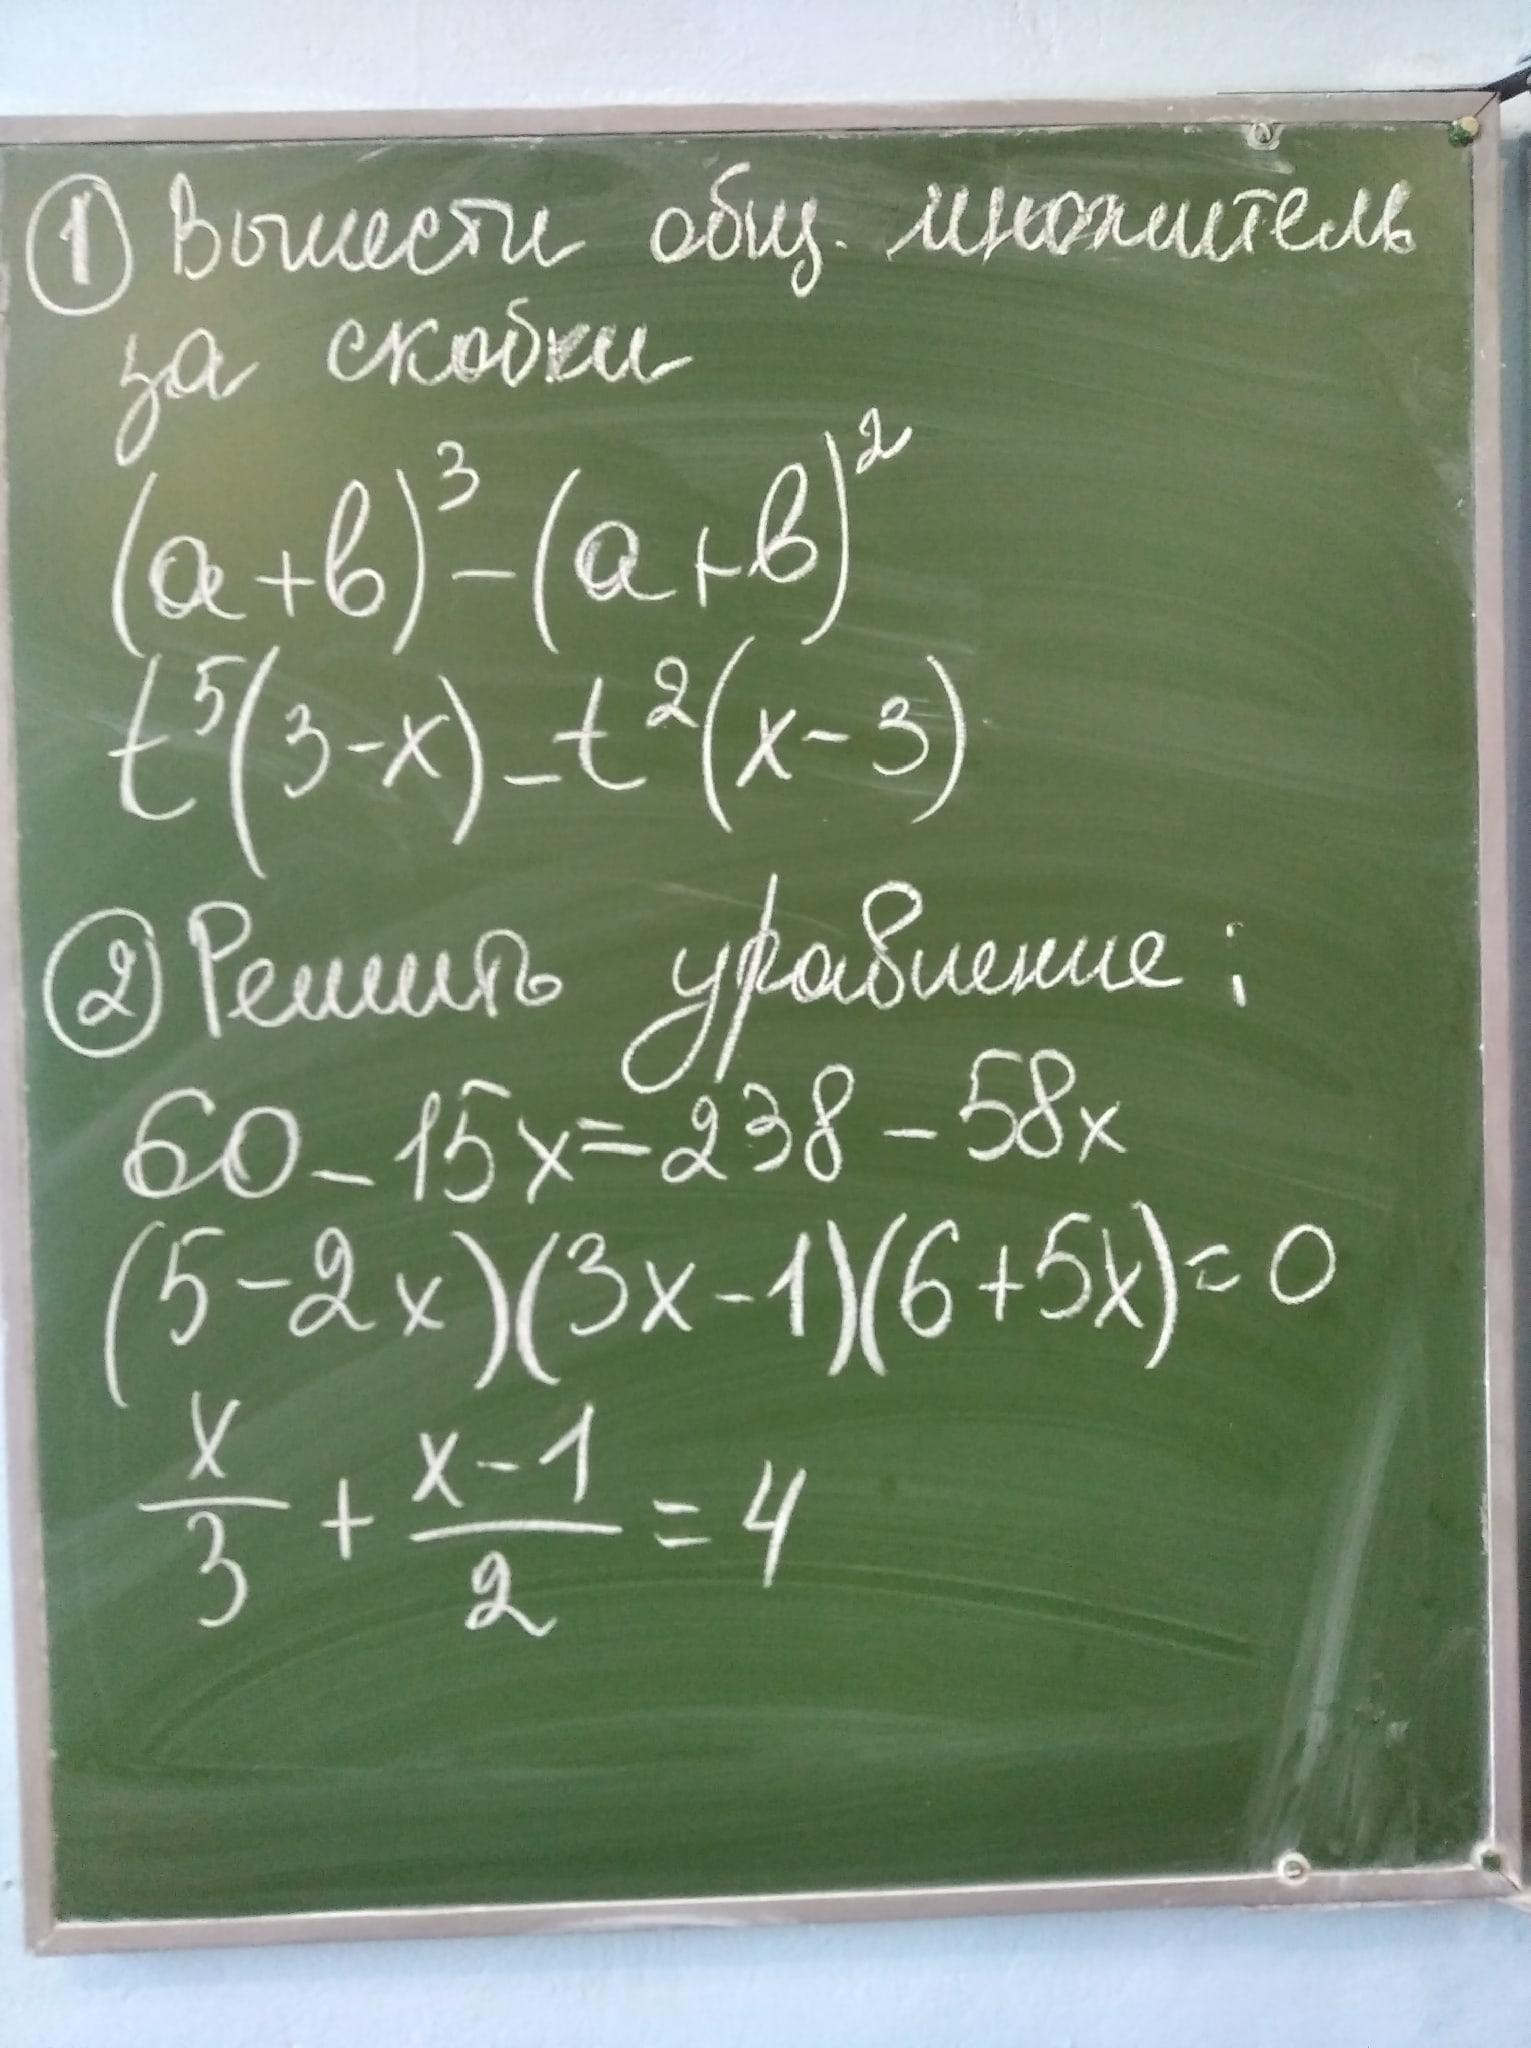 ① Вынести общ. множитель
за скобки
(а+в)³-(а+в)²
t⁵(3-x)-t²(x-3)
② Решить уравнение:
60-15x=238-58x
(5-2x)(3x-1)(6+5x)=0
x/3 + x-1/2 = 4